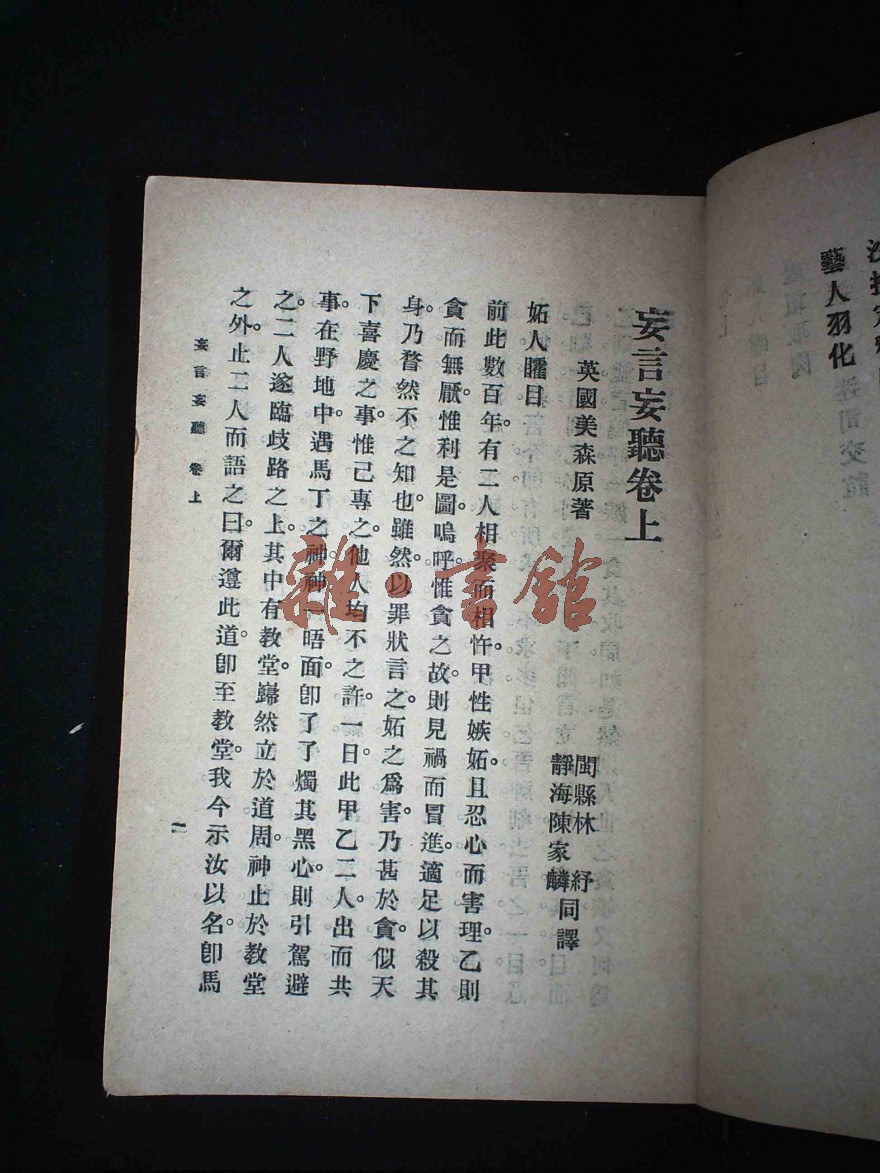 藝人羽化
妄言妄聽卷上
英國美森原著
閩縣林 紓
靜海陳家麟同譯
妬人矐目
前此數百年有二人相聚而相忤甲性嫉妬且忍心而害理乙則
貪而無厭惟利是圖嗚呼惟貪之故則見禍而冒進適足以殺其
身乃瞀然不之知也雖然以罪狀言之妬之爲害乃甚於貪似天
下喜慶之事惟己專之他人均不之許一日此甲乙二人出而共
事在野地中遇馬丁之神神一晤面卽了了燭其黑心則引駕避
之二人遂臨歧路之上其中有教堂巋然立於道周神止於教堂
之外止二人而語之曰爾遵此道卽至教堂我今示汝以名卽馬
妄言妄聽 卷上
一
雜·書館